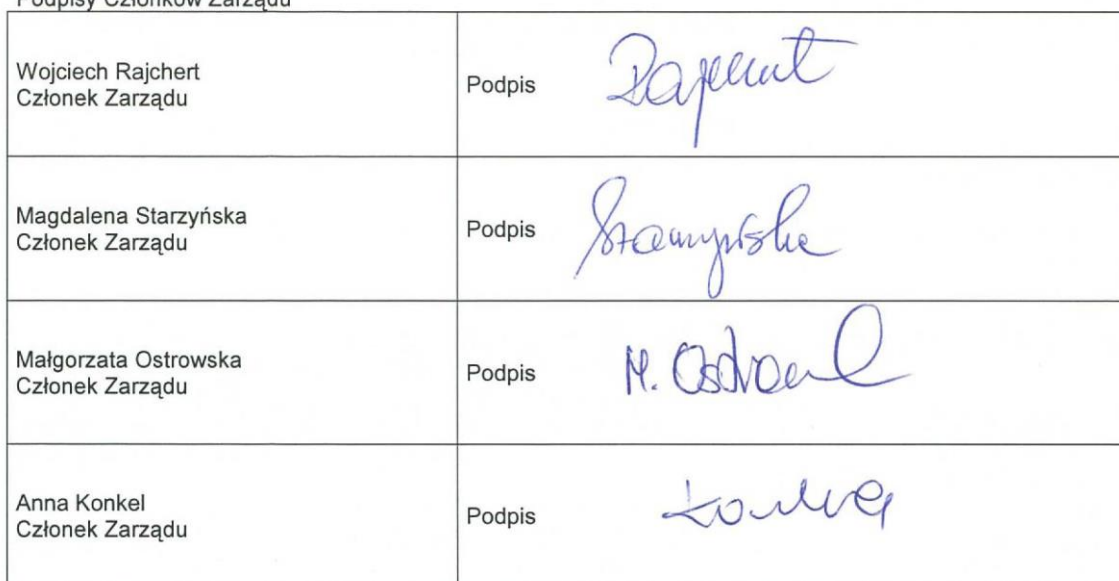 Podpisy Członków Zarządu
Wojciech Rajchert
Członek Zarządu
Podpis
Magdalena Starzyńska
Członek Zarządu
Podpis
Starzyńska
Małgorzata Ostrowska
Członek Zarządu
Podpis
Anna Konkel
Członek Zarządu
Podpis